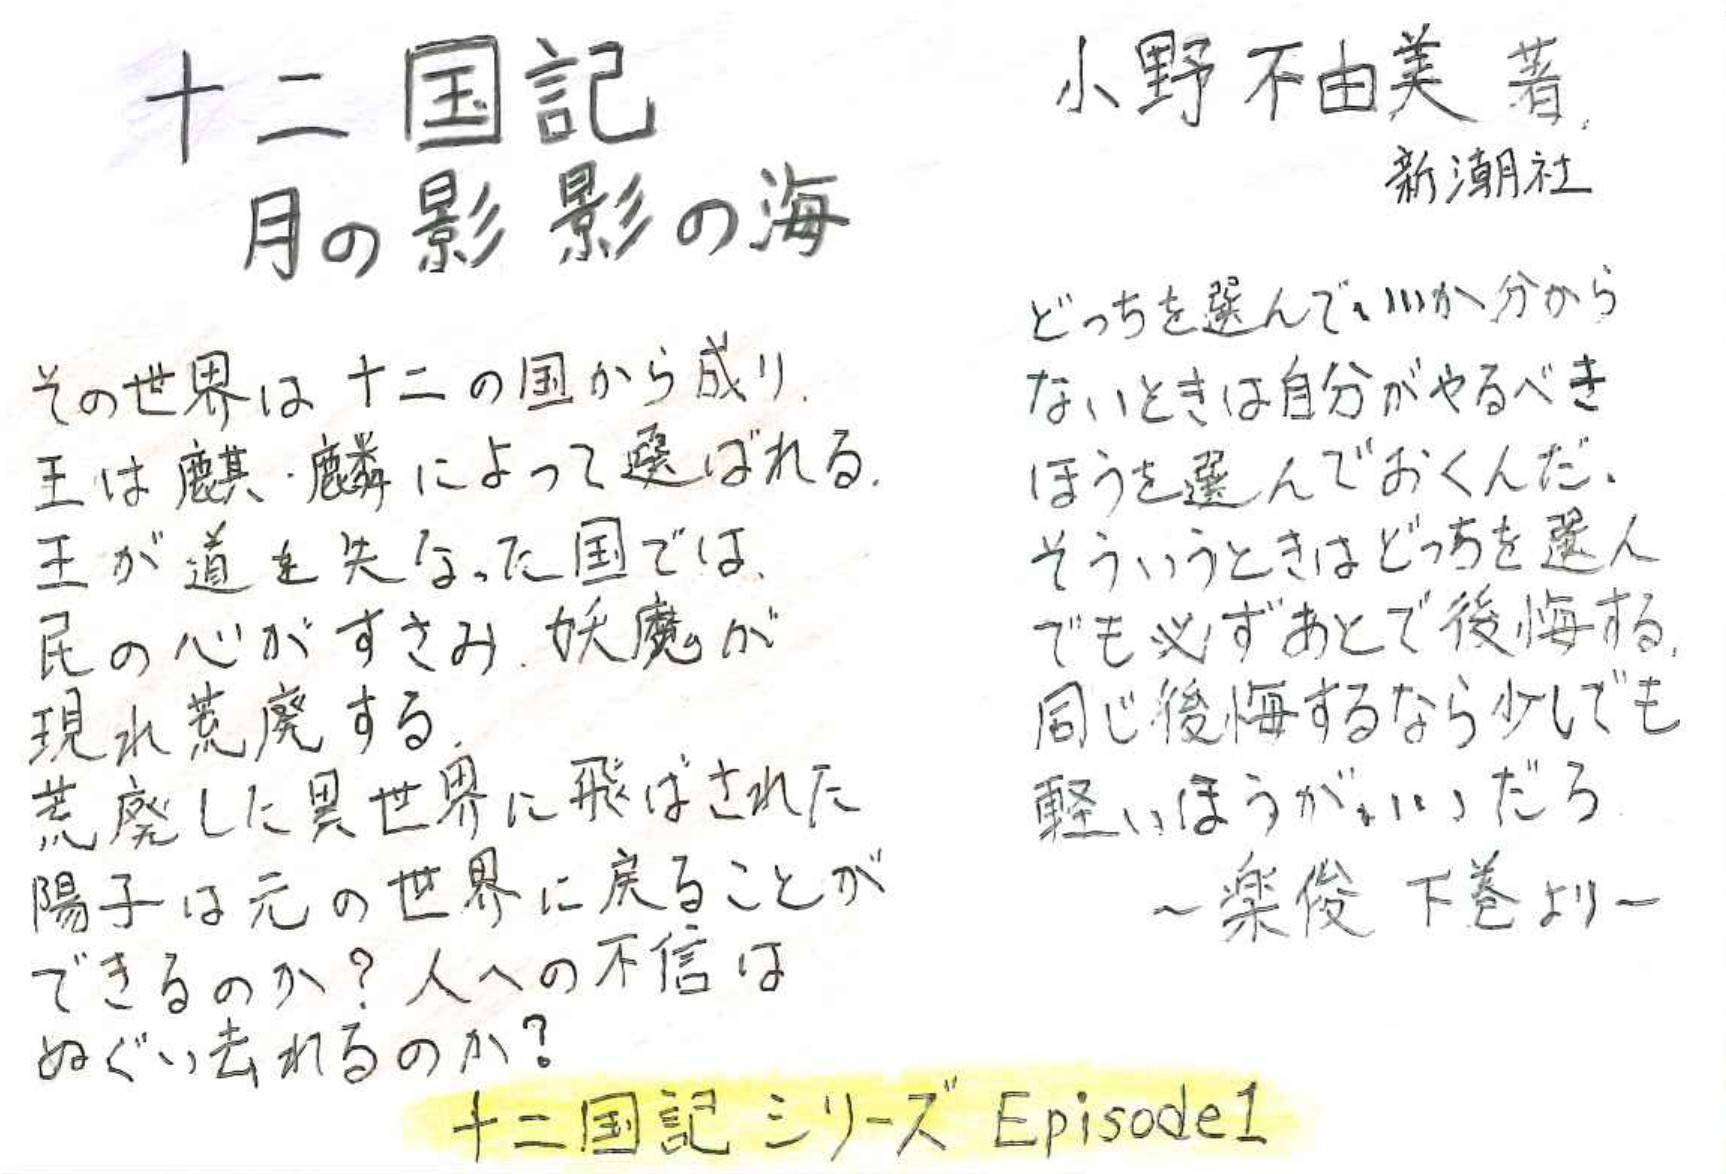 十二国記
月の影 影の海
小野不由美 著.
新潮社
その世界は 十二の国から成り、
王は麒・麟によって選ばれる.
王が道を失なった国では、
民の心がすさみ、妖魔が
現れ荒廃する.
荒廃した異世界に飛ばされた
陽子は元の世界に戻ることが
できるのか？人への不信は
ぬぐい去れるのか？
どっちを選んでいいか分から
ないときは自分がやるべき
ほうを選んでおくんだ、
そういうときはどっちを選ん
でも必ずあとで後悔する、
同じ後悔するなら少しでも
軽いほうがいいだろ.
～楽俊 下巻より～
十二国記シリーズ Episode1